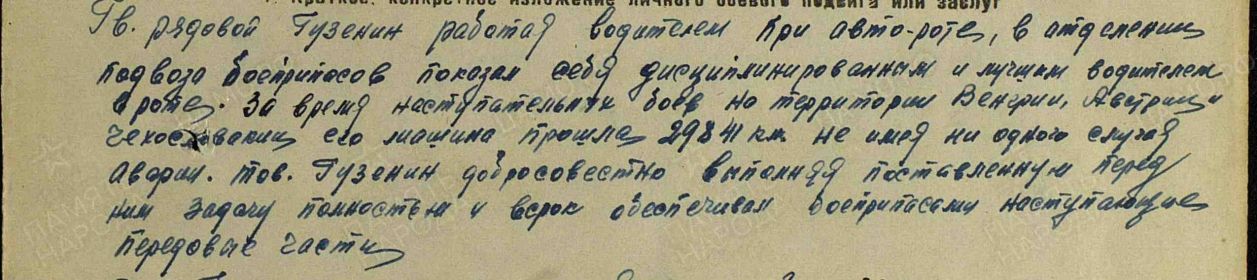 Краткое, конкретное изложение личного боевого подвига или заслуг
Гв. рядовой Гузенин работая водителем при авто-роте, в отделении
подвоза боеприпасов показал себя дисциплинированным и лучшим водителем
в роте. За время наступательных боев на территории Венгрии, Австрии и
Чехословакии его машина прошла 29841 км не имея ни одного случая
аварии. тов. Гузенин добросовестно выполняя поставленную перед
ним задачу полностью и всрок обеспечивал боеприпасами наступающие
передовые части